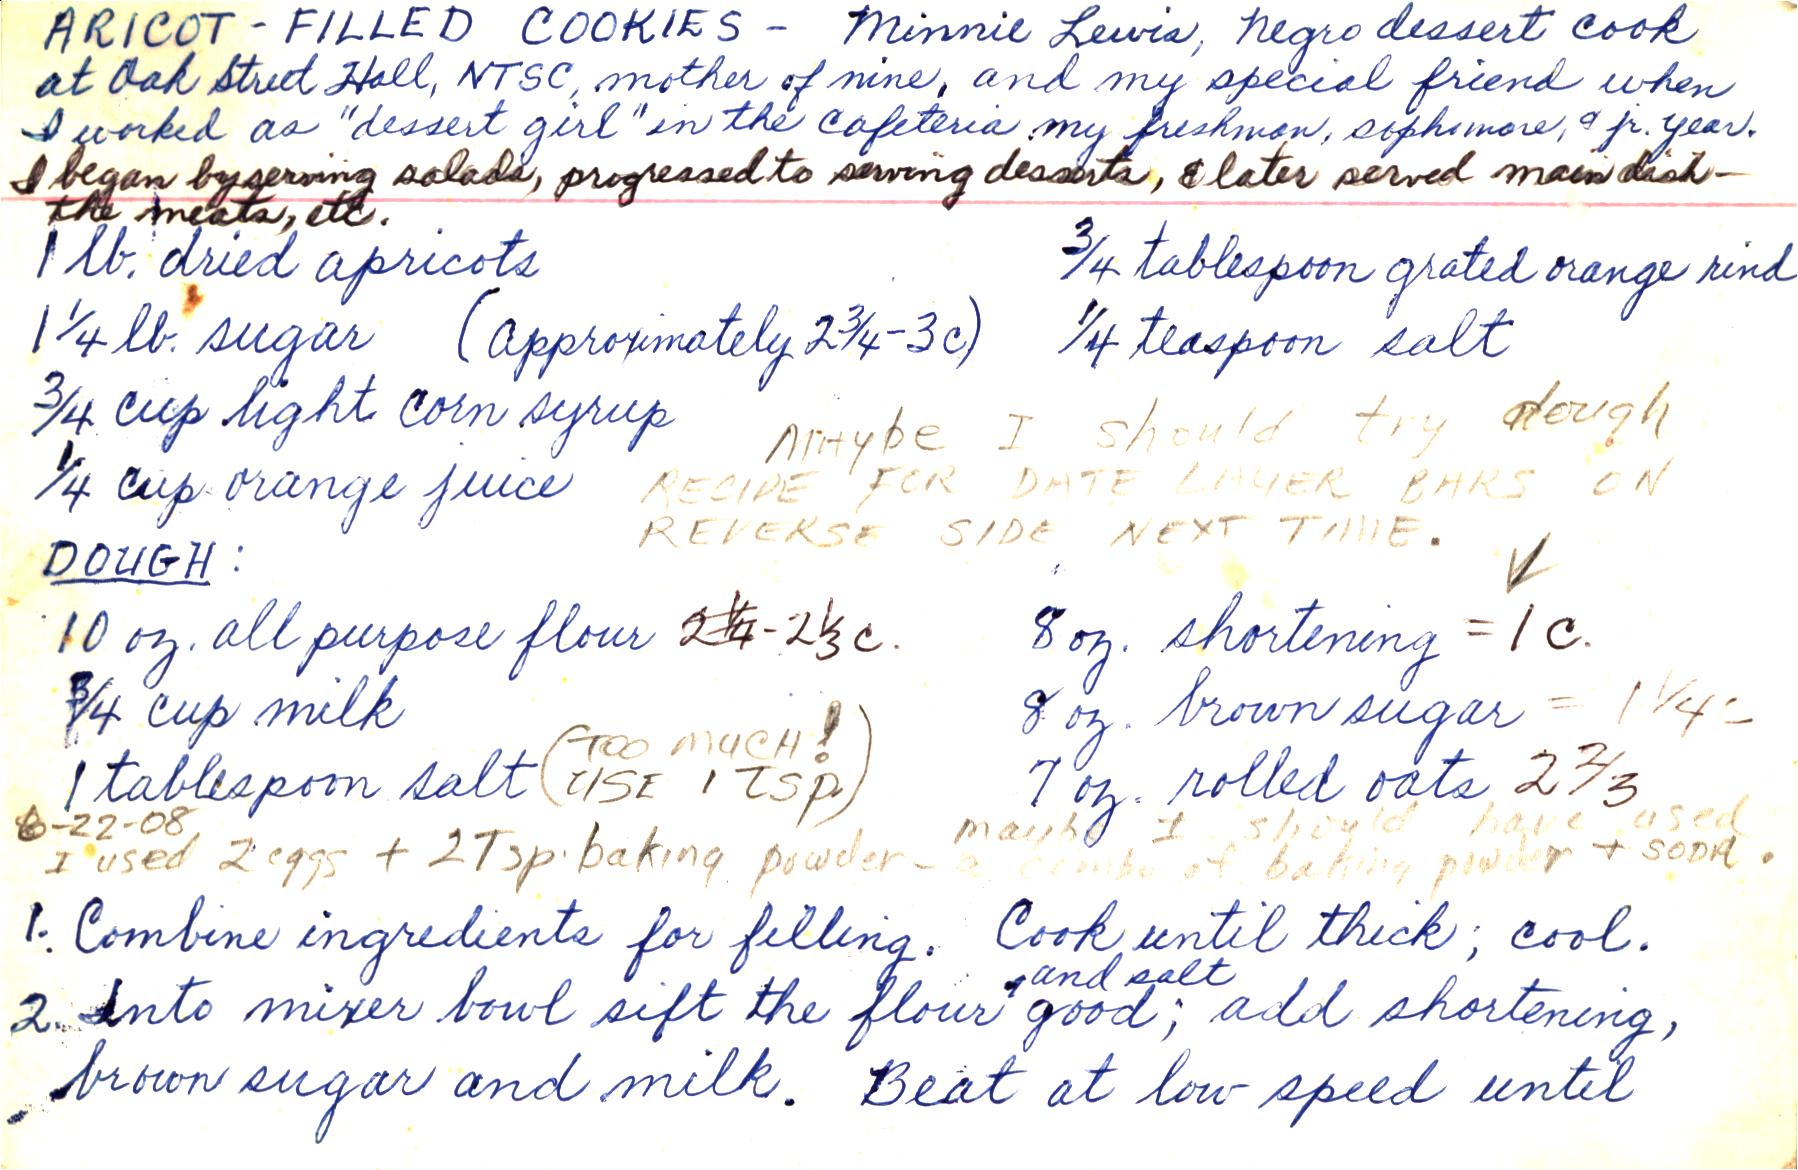 ARICOT - FILLED COOKIES - Minnie Lewis, Negro dessert cook
at Oak Street Hall, NTSC, mother of nine, and my special friend when
I worked as "dessert girl" in the cafeteria my freshman, sophomore, & jr. year.
I began by serving salads, progressed to serving desserts, & later served main dish -
the meats, etc.
1 lb. dried apricots
3/4 tablespoon grated orange rind
1 1/4 lb. sugar (approximately 2 3/4 - 3 c)
1/4 teaspoon salt
3/4 cup light corn syrup
1/4 cup orange juice
Maybe I should try dough
RECIPE FOR DATE LAYER BARS ON
REVERSE SIDE NEXT TIME.
DOUGH:
10 oz. all purpose flour 2 1/4 - 2 1/3 c.
8 oz. shortening = 1 c.
3/4 cup milk
8 oz. brown sugar = 1 1/4 -
1 tablespoon salt (TOO MUCH!
USE 1 TSP.)
7 oz. rolled oats 2 2/3
6-22-08,
I used 2 eggs + 2 Tsp. baking powder - maybe I should have used
a combo of baking powder + SODA.
1. Combine ingredients for filling. Cook until thick; cool.
2. Into mixer bowl sift the flour and salt good; add shortening,
brown sugar and milk. Beat at low speed until